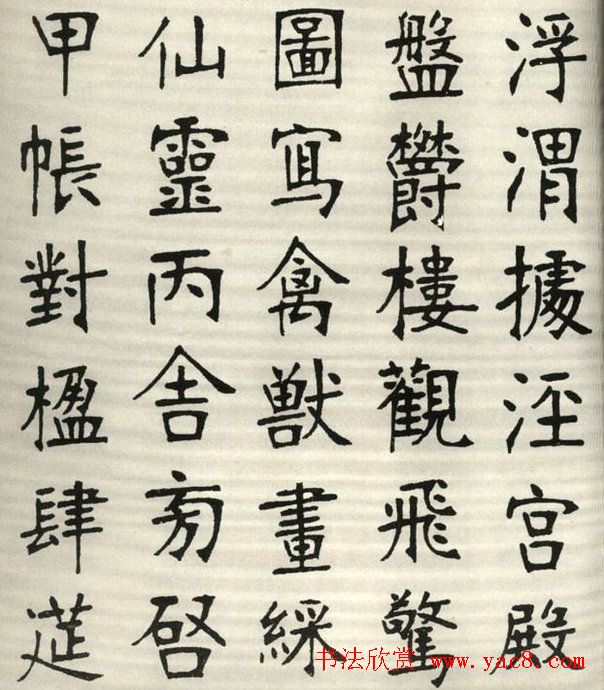 浮渭據涇宮殿
盤欝樓觀飛驚
圖寫禽獸畫綵
仙靈丙舍旁啓
甲帳對楹肆筵
书法欣赏 www.yac8.com